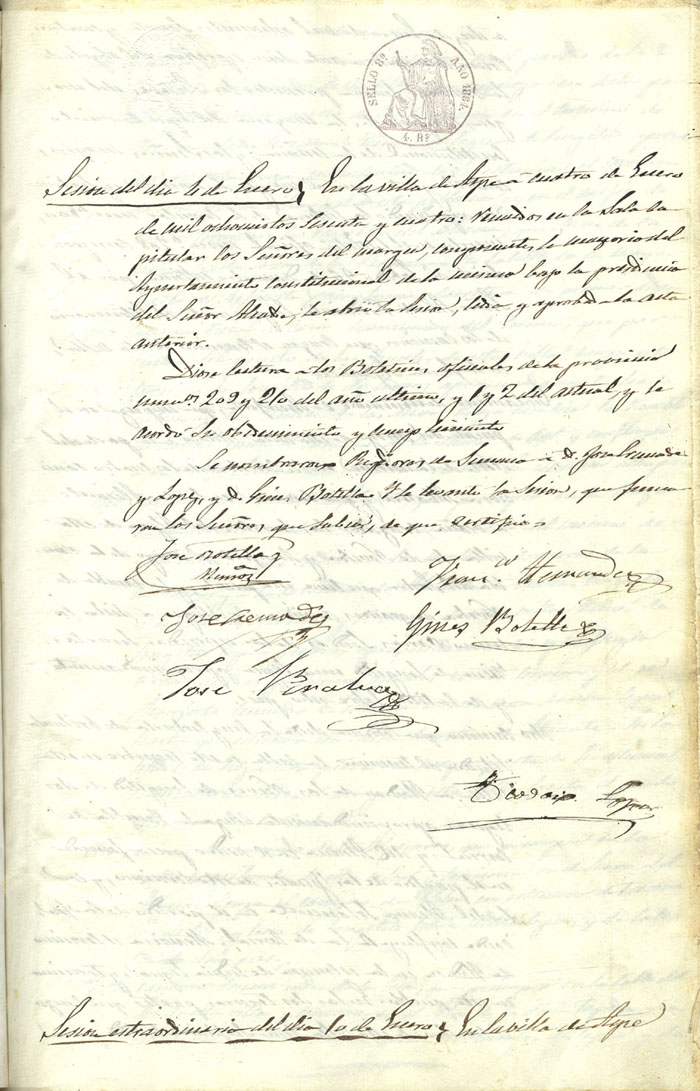 SELLO 8º AÑO 1864.
4. Rs
Sesion del dia 4 de Enero, En la villa de Aspe a cuatro de Enero
de mil ochocientos sesenta y cuatro: reunidos en la Sala Ca
pitular los Señores del margen, componentes la mayoria del
Ayuntamiento Constitucional de la misma bajo la presidencia
del Señor Alcalde, se abrió la sesion, leida y aprobada la acta
anterior.
Diose lectura a los Boletines oficiales de la provincia
numos 209 y 210 del año ultimo, y 1 y 2 del actual, y se
acordó su obedecimiento y cumplimiento
Se nombraron Regidores de Semana a D. Jose Cremades
y Lopez, y D. Gines Botella. Y se levantó la sesion, que firma
ron los Señores que saben, de que certifico =
Jose Botella y
Muñoz
Franco Hernandez
Jose Cremades
Gines Botella
Jose
Lopez
Sesion extraordinaria del dia 10 de Enero, En la villa de Aspe